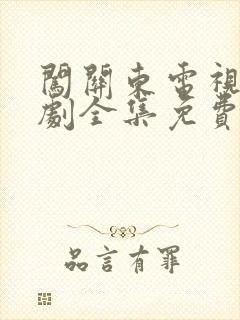 闖關東電視
劇全集免費
品言有罪